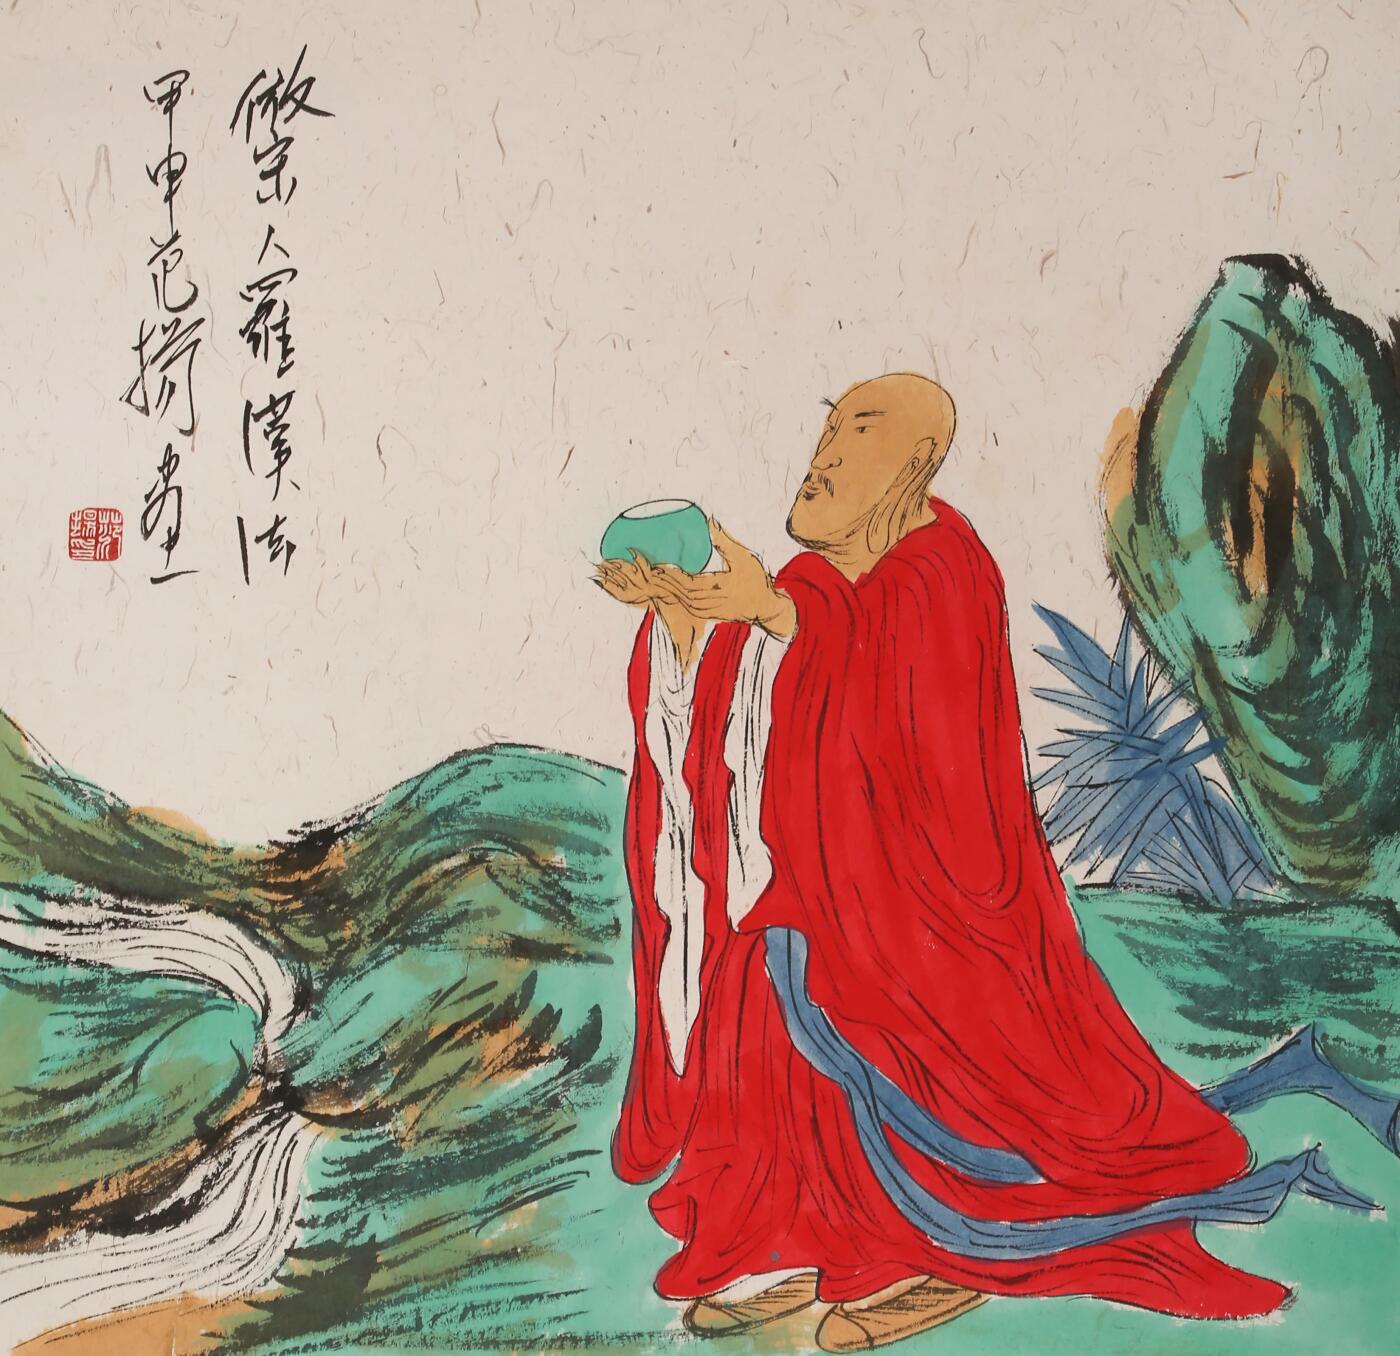 倣宋人羅漢法
甲申范揚畫
范揚印